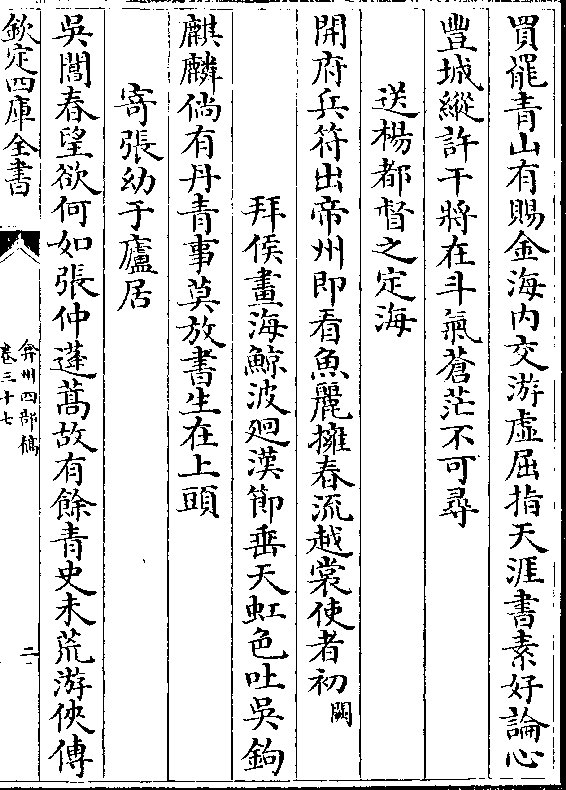 買罷青山有賜金海内交游虛屈指天涯書素好論心
豐城縱許干將在斗氣蒼茫不可尋
送楊都督之定海
開府兵符出帝州即看魚麗擁春流越裳使者初闕
拜侯畫海鯨波廻漢節垂天虹色吐吳鉤
麒麟倘有丹青事莫放書生在上頭
寄張幼于廬居
吳閶春望欲何如張仲蓬蒿故有餘青史未荒游俠傳
欽定四庫全書
弇州四部稿
卷三十七
二